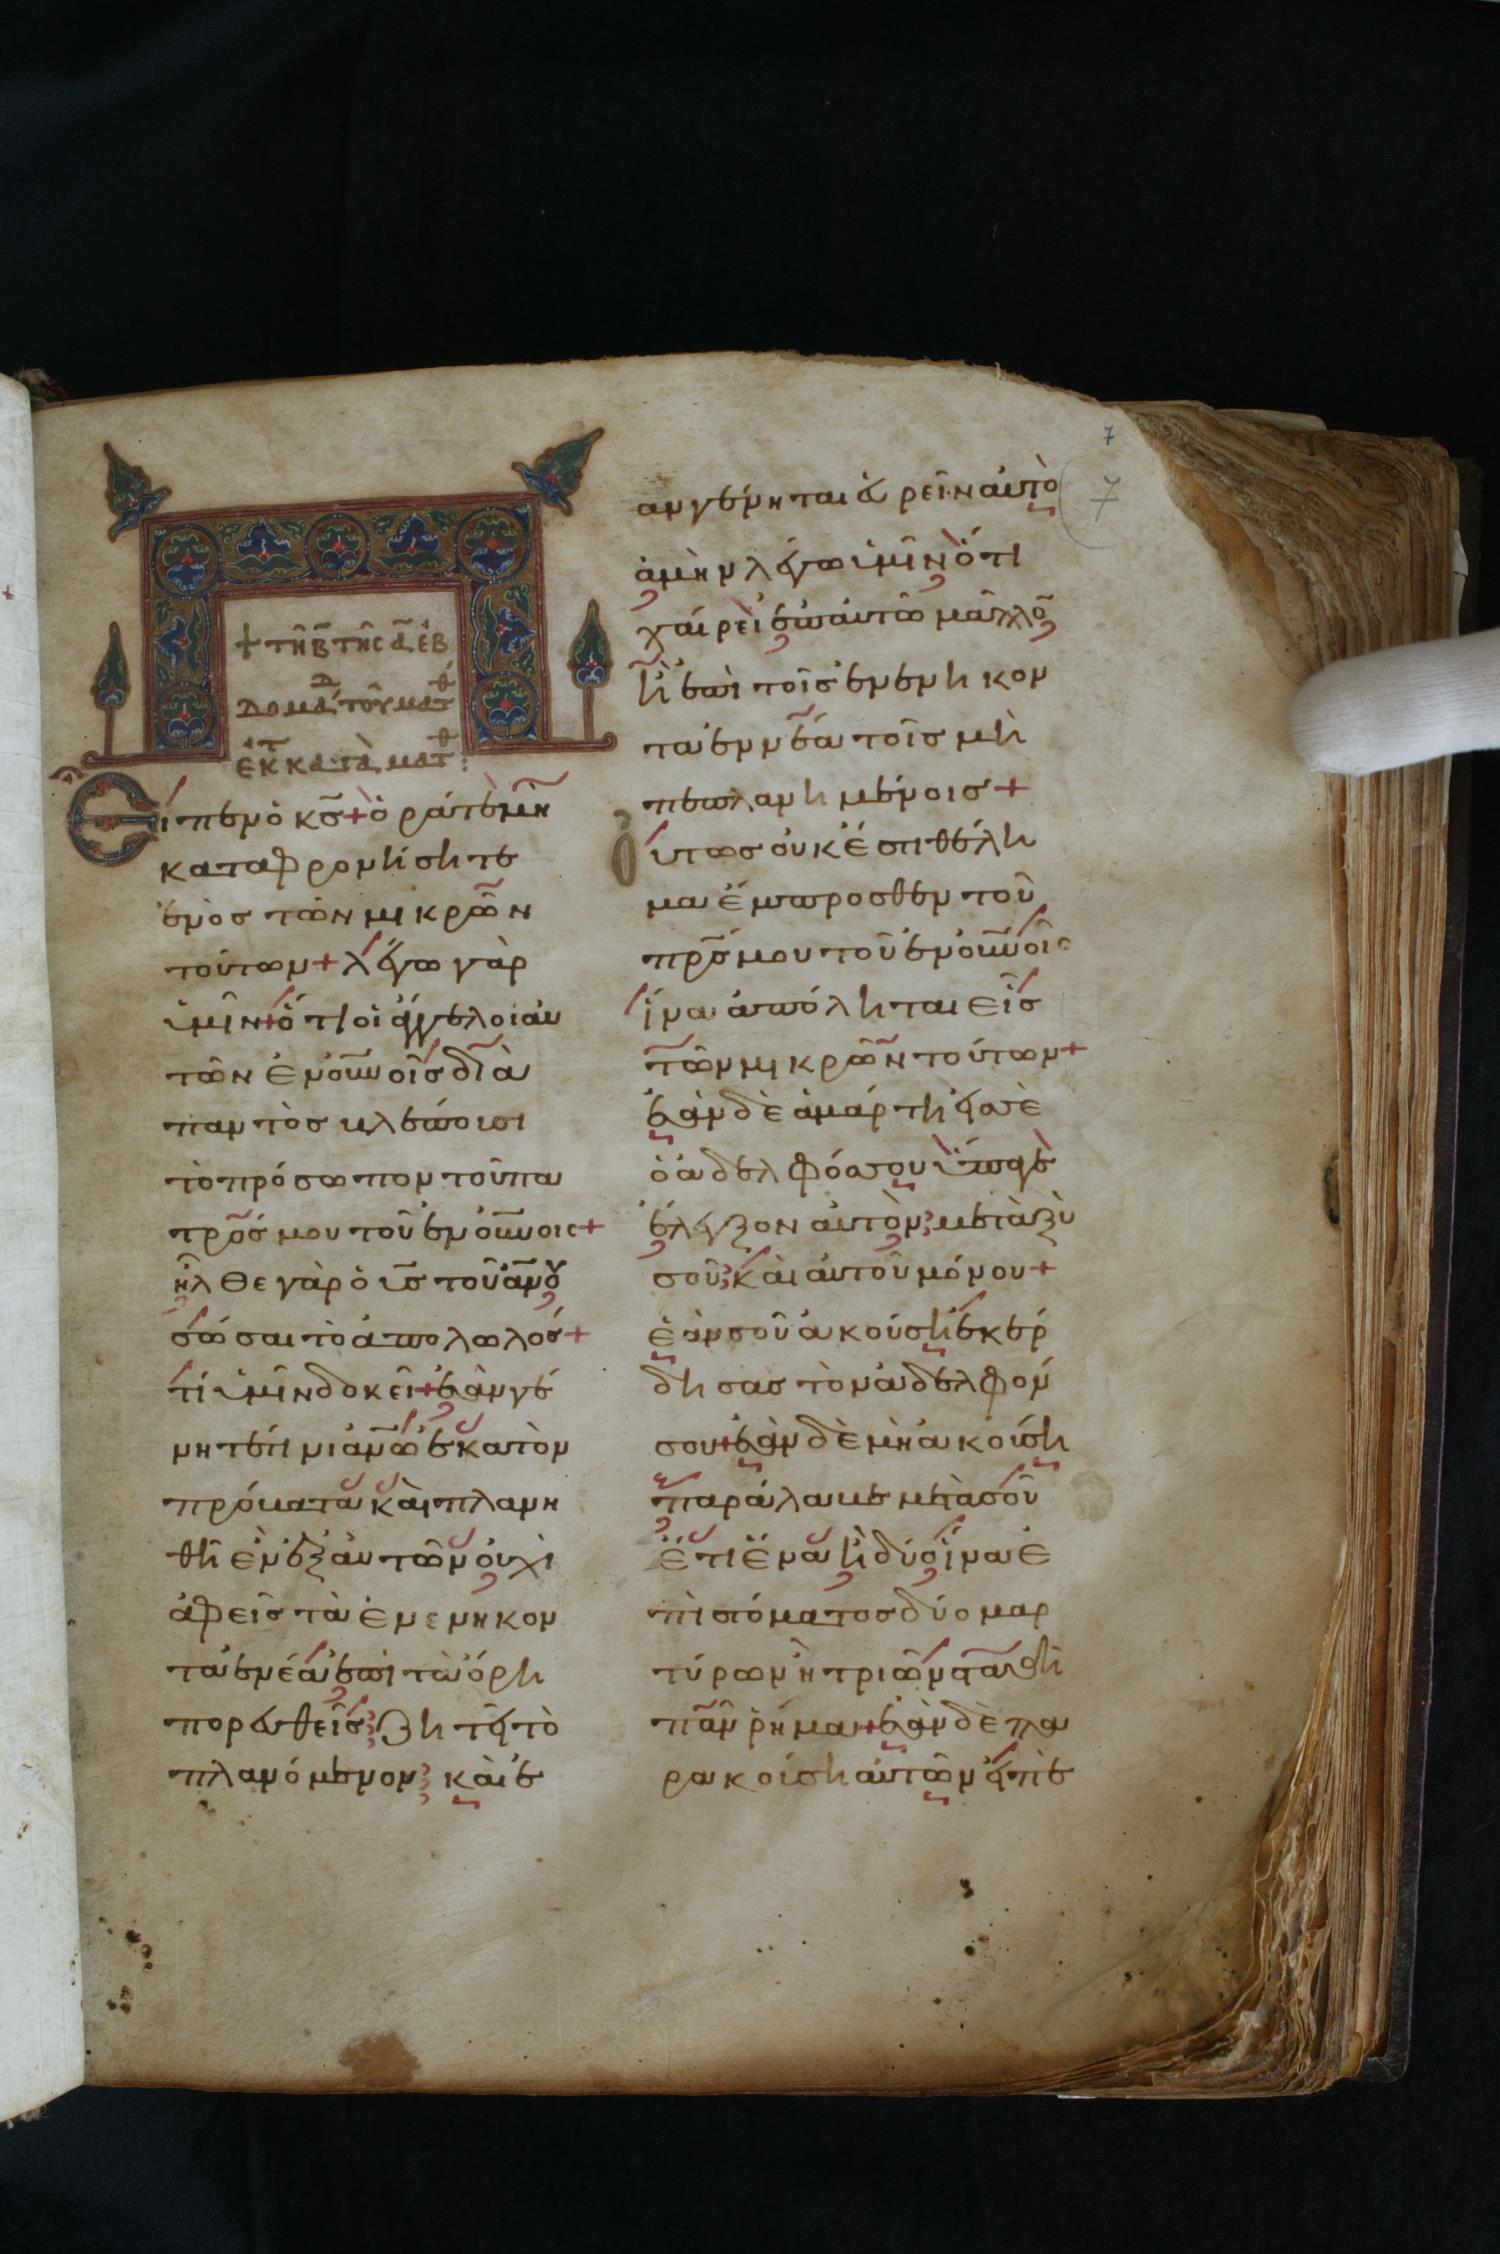 + τῆ β̄ τῆς ᾱ ἑβ
δομάδ τοῦ ματθ
ἐκ κατὰ ματθ:
Εἶπεν ὁ κ̅ς̅+ ὁρᾶτε μὴ
καταφρονήσητε
ἑνὸς τῶν μικρῶν
τούτων+ λέγω γὰρ
ὑμῖν+ ὅτι οἱ ἄγγελοι αυ
τῶν ἐν ο̅υ̅ν̅οῖς δια
παντὸς βλέπουσι
τὸ πρόσωπον τοῦ πα
τρός μου τοῦ ἐν ο̅υ̅ν̅οις+
ἦλθε γὰρ ὁ υ̅ς̅ τοῦ α̅ν̅ο̅υ̅
σῶσαι τὸ ἀπολωλός+
τί ὑμῖν δοκεῖ+ ἐὰν γέ
νηταί τινι α̅ν̅ω̅ ἑκατὸν
πρόβατα καὶ πλανη
θῆ ἓν ἐξ αυτῶν οὐχὶ
ἀφεὶς τὰ ἐνενηκον
ταεννέα ἐπὶ τὰ ὄρη
πορευθεὶς ζητεῖ τὸ
πλανόμενον καὶ ἐ
αν γένηται εὑρεῖν αὐτὸ
ἀμὴν λέγω ὑμῖν ὅτι
χαίρει ἐπ αυτῶ μᾶλλον
ἢ ἐπὶ τοῖς ἐνενηκον
ταεννέα τοῖς μὴ
πεπλανημένοις+
Οὕτως οὐκ ἔστι θέλη
μα ἔμπροσθεν τοῦ
π̅ρ̅ς μου τοῦ ἐν ο̅υ̅ν̅οῖς
ἵνα ἀπόληται εἷς
τῶν μικρῶν τούτων+
ἐὰν δὲ ἁμάρτη εἰς σὲ
ὁ ἀδελφός σου ὕπαγε
ἔλεγξον αὐτὸν μεταξὺ
σοῦ καὶ αὐτοῦ μόνου+
ἐάν σου ἀκούση ἐκέρ
δησας τὸν ἀδελφόν
σου+ ἐὰν δὲ μὴ ἀκούση
παράλαβε μετὰ σοῦ
ἔτι ἕνα ἢ δύο ἵνα ἐ
πὶ στόματος δύο μαρ
τύρων ἢ τριῶν σταθῆ
πᾶν ῥῆμα+ ἐὰν δὲ πα
ρακούση αὐτῶν εἰπὲ
7
7